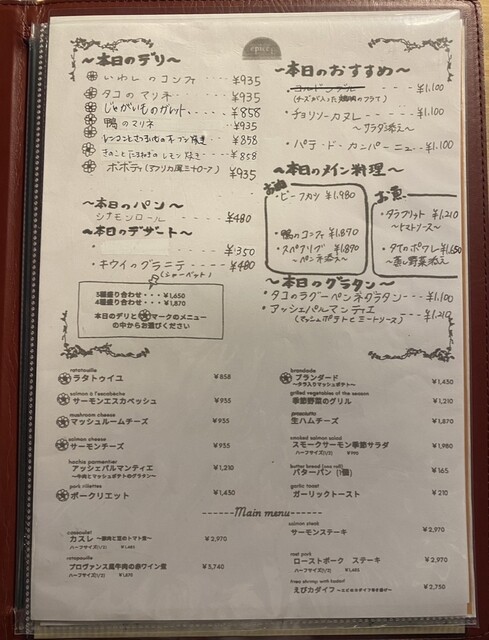 epices
～本日のデリ～
いわしのコンフィ ---- ¥935
タコのマリネ ---- ¥935
じゃがいものガレット ---- ¥858
鴨のマリネ ---- ¥935
レンコンとさつまいものオーブン焼き ¥858
きのこと玉ねぎのレモン炊き -- ¥858
ボボティ(アフリカ風ミートローフ) ¥935
～本日のパン～
シナモンロール ---- ¥480
～本日のデザート～
・ ¥350
・キウイのグラニテ ---- ¥480
(シャーベット)
3種盛り合わせ・・・¥1,650
4種盛り合わせ・・・¥1,870
本日のデリと マークのメニュー
の中からお選びください
～本日のおすすめ～
¥1,100
・チョリソーカヌレ ---- ¥1,100
～サラダ添え～
・パテ・ド・カンパーニュ -- ¥1,100
～本日のメイン料理～
お肉
・ビーフカツ ¥1,980
・鴨のコンフィ ¥1,870
・スペアリブ ¥1,890
～ペンネ添え～
お魚
・タラフリット ¥1,210
～トマトソース～
・タイのポワレ ¥1,650
～蒸し野菜添え～
～本日のグラタン～
・タコのラグーペンネグラタン --- ¥1,100
・アッシェパルマンティエ ---- ¥1,210
(マッシュポテトとミートソース)
ratatouille
ラタトゥイユ ¥858
salmon à l'escabèche
サーモンエスカベッシュ ¥935
mushroom cheese
マッシュルームチーズ ¥935
salmon cheese
サーモンチーズ ¥935
hachis parmentier
アッシェパルマンティエ ¥1,210
～牛肉とマッシュポテトのグラタン～
pork rillettes
ポークリエット ¥1,430
brandade
ブランダード ¥1,430
～タラ入りマッシュポテト～
grilled vegetables of the season
季節野菜のグリル ¥1,210
prosciutto
生ハムチーズ ¥1,870
smoked salmon salad
スモークサーモン季節サラダ ¥1,980
ハーフサイズ(1/2) ¥990
butter bread (one roll)
バターパン (1個) ¥165
garlic toast
ガーリックトースト ¥210
------Main menu------
cassoulet
カスレ ～豚肉と豆のトマト煮～ ¥2,970
ハーフサイズ(1/2) ¥1,485
プロヴァンス風牛肉の赤ワイン煮 ¥3,740
ハーフサイズ(1/2) ¥1,870
salmon steak
サーモンステーキ ¥2,970
roast pork
ローストポーク ステーキ ¥2,970
ハーフサイズ(1/2) ¥1,485
fried shrimp with kadaif
えびカダイフ ¥2,750